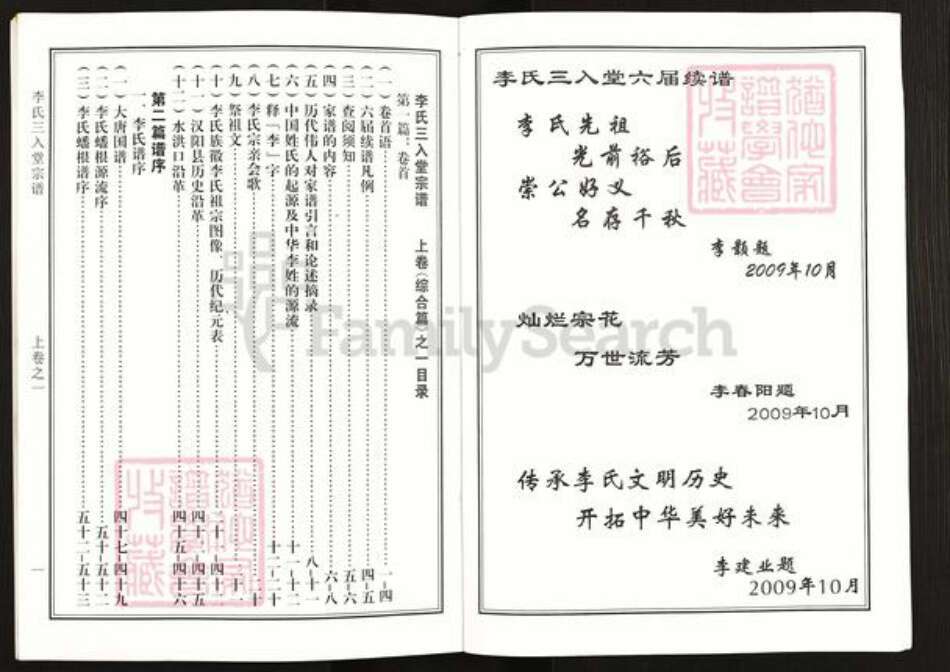 李氏三入堂六届续谱
李氏先祖
光前裕后
崇公好义
名存千秋
李颢题
2009年10月
灿烂宗花
万世流芳
李春阳题
2009年10月
传承李氏文明历史
开拓中华美好未来
李建业题
2009年10月
犹他家谱學會收藏
FamilySearch
李氏三入堂宗谱 上卷(综合篇)之一目录
第一篇、卷首
(一)卷首语 一-四
(二)六届续谱凡例 四-五
(三)查阅须知 五-六
(四)家谱的内容 六-八
(五)历代伟人对家谱引言和论述摘录 八-十一
(六)中国姓氏的起源及中华李姓的源流 十一-十二
(七)释「李」字 十二-二十
(八)李氏宗亲会歌
(九)祭祖文
(十)李氏族徽李氏祖宗图像、历代纪元表
(十一)汉阳县历史沿革 四十一-四十五
(十二)水洪口沿革 四十五-四十六
第二篇 谱序
一、李氏谱序
(一)大唐国谱 四十七-四十九
(二)李氏蟠根源流序 五十-五十二
(三)李氏蟠根谱序 五十二-五十三
李氏三入堂宗谱 上卷之一 一
犹他家谱學會收藏